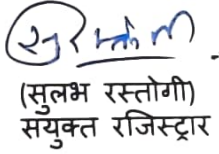 (सुलभ रस्तोगी)
सयुक्त रजिस्ट्रार